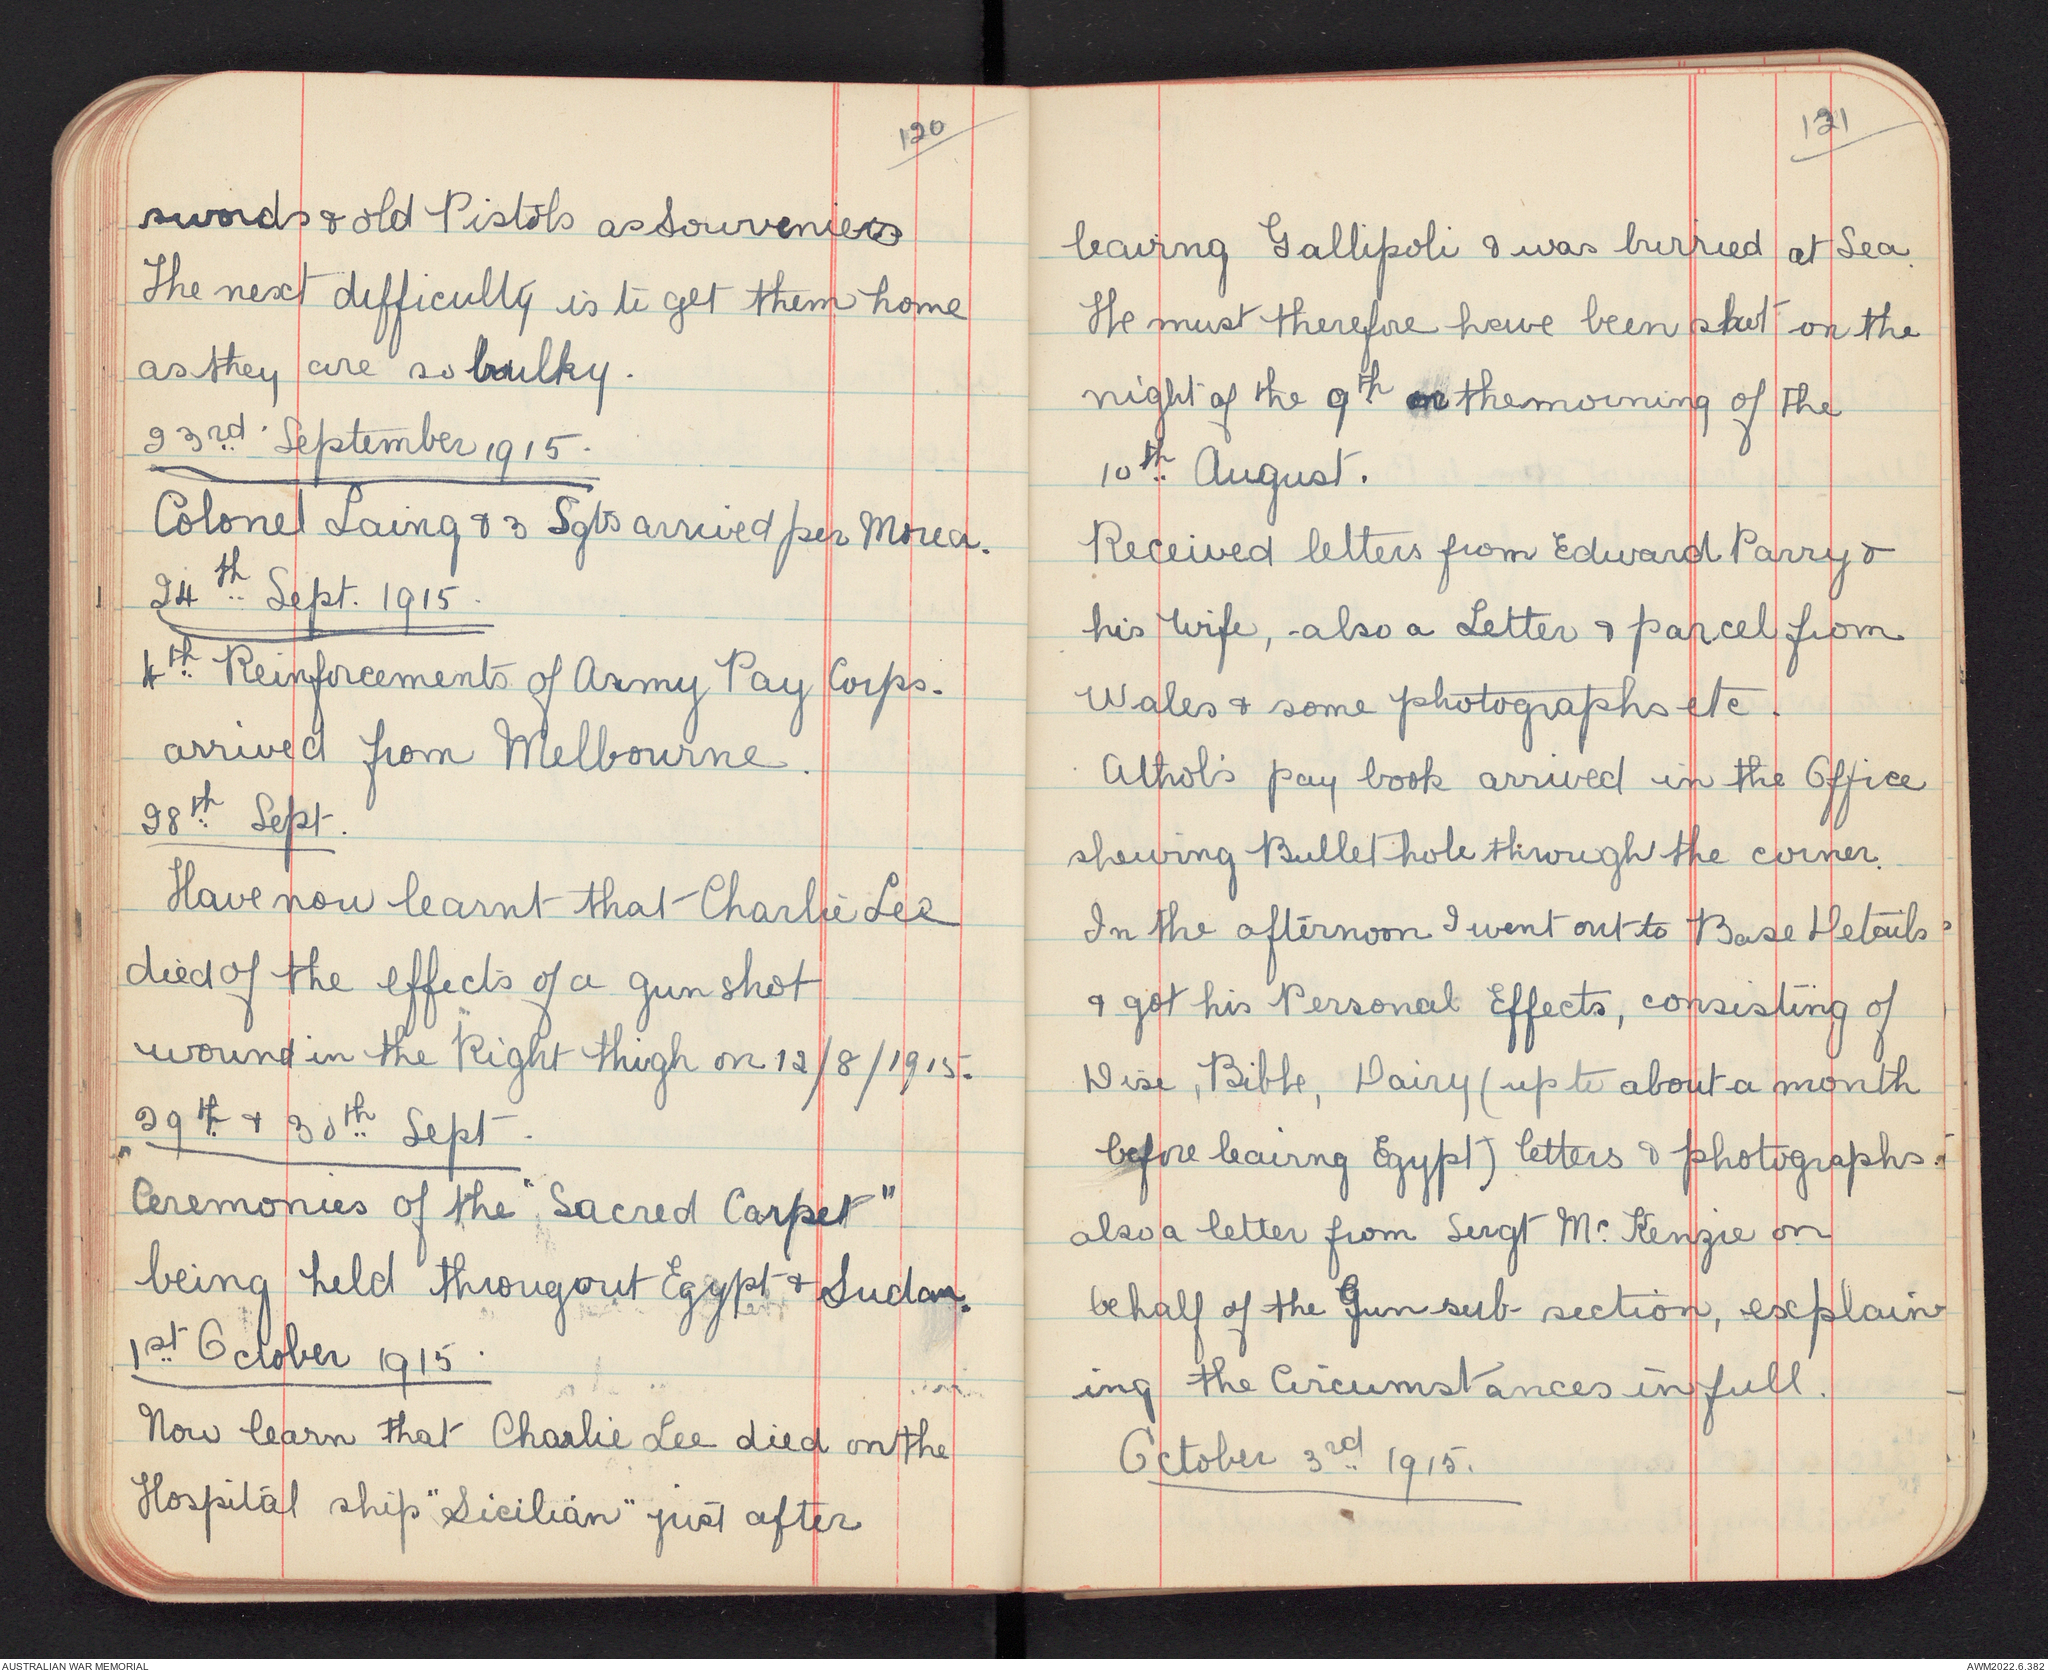 120
swords & old Pistols as Souveniers
The next difficulty is to get them home
as they are so bulky.
23rd September 1915.
Colonel Laing & 3 Sgts arrived per Morea.
24th Sept. 1915.
4th Reinforcements of Army Pay Corps.
arrived from Melbourne.
28th Sept.
Have now learnt that Charlie Lee
died of the effects of a gun shot
wound in the Right thigh on 12/8/1915.
29th & 30th Sept.
Ceremonies of the "Sacred Carpet"
being held througout Egypt & Sudan.
1st October 1915.
Now learn that Charlie Lee died on the
Hospital ship "Sicilian" just after
121
leaving Gallipoli & was burried at Sea.
He must therefore have been shot on the
night of the 9th or the morning of the
10th August.
Received letters from Edward Parry &
his Wife, also a Letter & parcel from
Wales & some photographs etc.
Athol's pay book arrived in the Office
shewing Bullet hole through the corner.
In the afternoon I went out to Base Details
& got his Personal Effects, consisting of
Disc, Bible, Dairy (up to about a month
before leaving Egypt) letters & photographs.
also a letter from Sergt Mc. Kenzie on
behalf of the Gun sub-section, explain
ing the Circumstances in full.
October 3rd 1915.
AUSTRALIAN WAR MEMORIAL
AWM2022.6.382